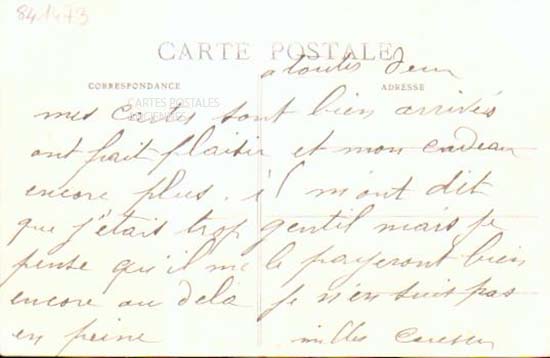 84 1473
CARTE POSTALE
a toutes deux
CORRESPONDANCE
ADRESSE
CARTES POSTALES
ANCIENNES
mes cartes sont bien arrivés
ont fait plaisir et mon cadeau
encore plus. il m'ont dit
que j'étais trop gentil mais je
pense qu'il me le payeront bien
encore au delà je n'en suis pas
en peine milles caresses